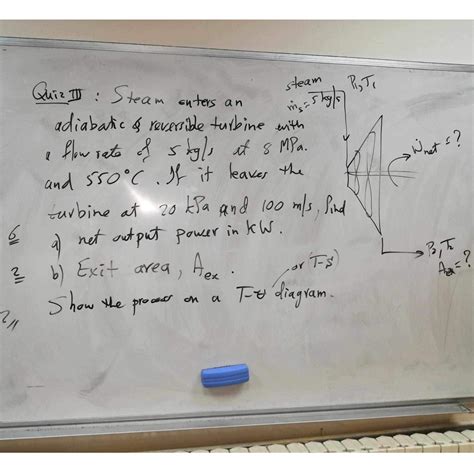 Quiz III : Steam enters an
adiabatic & reversible turbine with
a flow rate of 5 kg/s at 8 MPa.
and 550°C. If it leaves the
turbine at 20 kPa and 100 m/s, find
6 a) net output power in kW.
2 b) Exit area, Aex.
or T-s)
2 Show the process on a T-v diagram.
steam
ṁs = 5 kg/s
P1, T1
Ẇnet = ?
P2, T2
Aex = ?